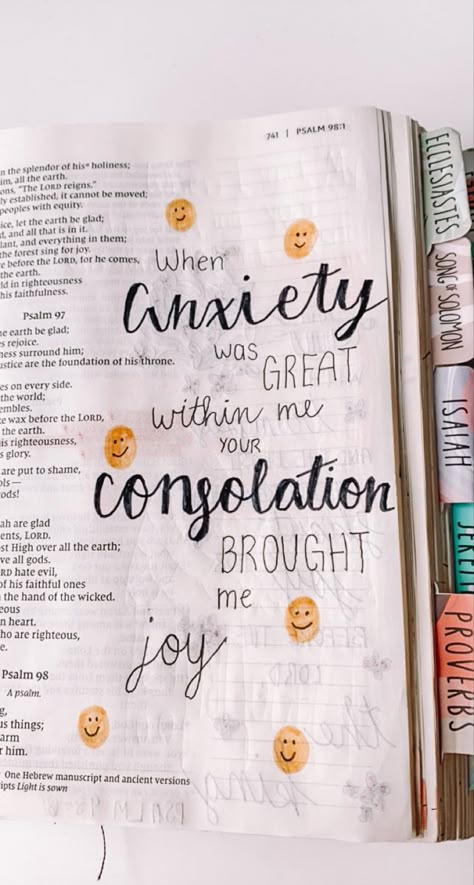 741 | PSALM 98:1
n the splendor of his holiness;
im, all the earth.
ons, "The LORD reigns."
ly established, it cannot be moved;
peoples with equity.
ice, let the earth be glad;
d, and all that is in it.
lant, and everything in them;
the forest sing for joy.
e before the LORD, for he comes,
the earth.
ld in righteousness
his faithfulness.
Psalm 97
he earth be glad;
s rejoice.
ness surround him;
ustice are the foundation of his throne.
es on every side.
the world;
embles.
e wax before the LORD,
the earth.
is righteousness,
s glory.
are put to shame,
ols—
ods!
ah are glad
ents, LORD.
st High over all the earth;
ve all gods.
RD hate evil,
of his faithful ones
the hand of the wicked.
eous
n heart.
ho are righteous,
e.
Psalm 98
A psalm.
g,
us things;
arm
r him.
One Hebrew manuscript and ancient versions
ipts Light is sown
When
anxiety
was GREAT
within me
YOUR
consolation
BROUGHT
me
joy
ECCLESIASTES
SONG OF SOLOMON
ISAIAH
JEREM
PROVERBS